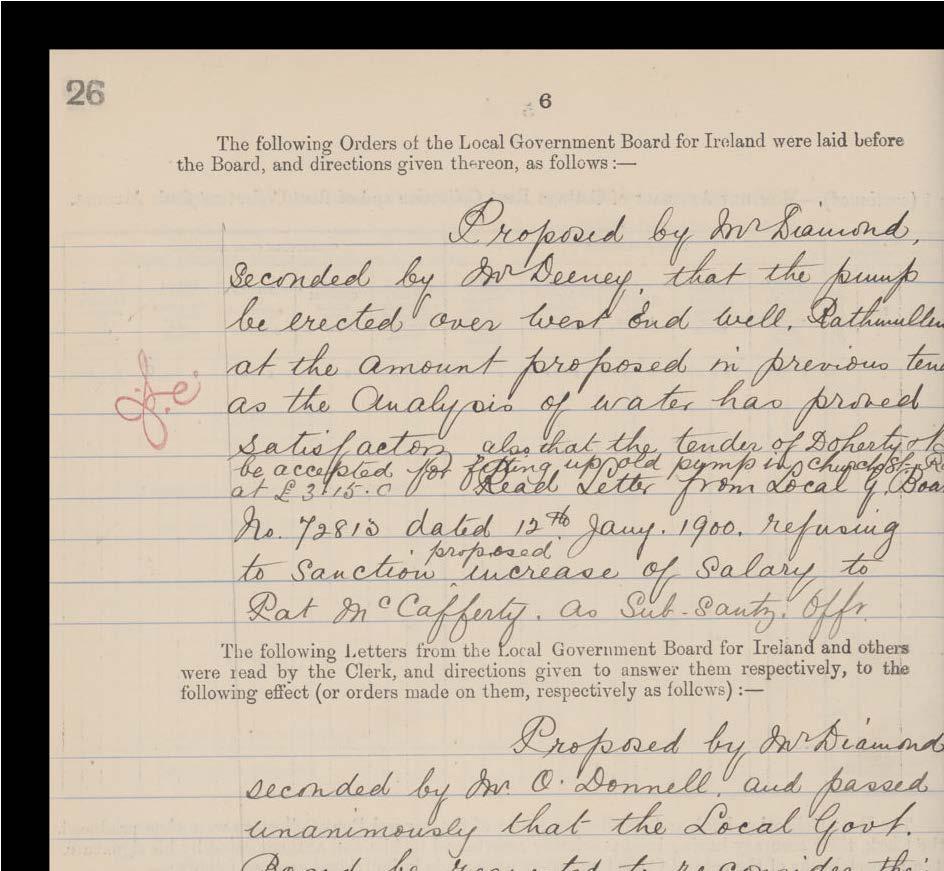 26
6
The following Orders of the Local Government Board for Ireland were laid before
the Board, and directions given thereon, as follows :—
Proposed by Mr Diamond,
seconded by Mr Deeney, that the pump
be erected over West End Well, Rathmullen
at the amount proposed in previous
as the Analysis of water has proved
satisfactory also that the tender of Doherty
be accepted for fitting up old pump in Church St.
at £3.15.0 Read Letter from Local G. Boar
No. 72813 dated 12th Jany. 1900. refusing
proposed
to Sanction increase of Salary to
Pat McCafferty. as Sub-Santy. Offr.
The following Letters from the Local Government Board for Ireland and others
were read by the Clerk, and directions given to answer them respectively, to the
following effect (or orders made on them, respectively as follows) :—
Proposed by Mr. Diamond
seconded by Mr. O'Donnell, and passed
unanimously that the Local Govt.
Board be requested to reconsider